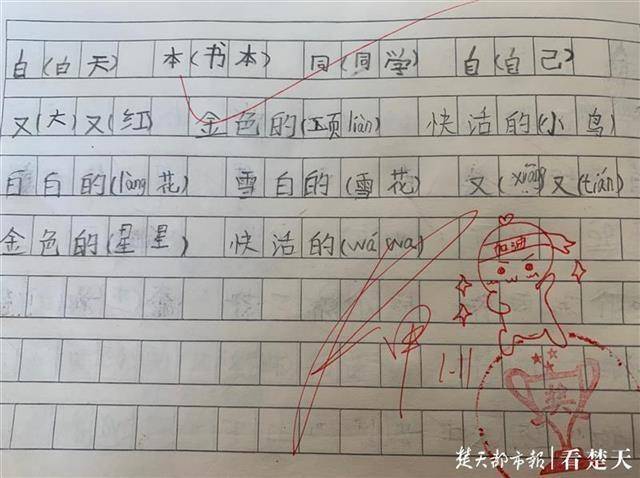 白(白天) 本(书本) 同(同学) 自(自己)
又(大)又(红) 金色的(项liàn) 快活的(小鸟)
白白的(làng花) 雪白的(雪花) 又(xiāng)又(tián)
金色的(星星) 快活的(wá wa)
加油
甲
1.11
奖
楚天都市报 看楚天